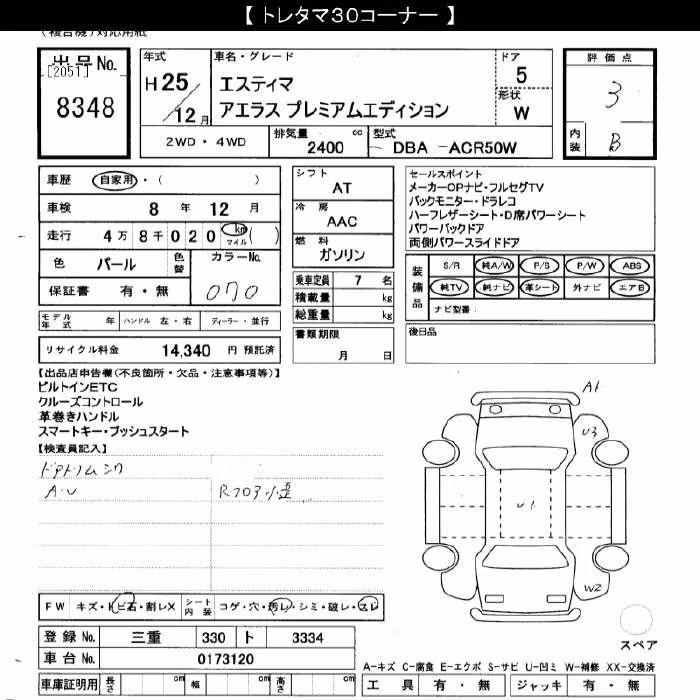 【 トレタマ30コーナー 】
(複合機)対応用紙
出品No.
[2051]
8348
年式
H 25/12月
車名・グレード
エスティマ
アエラス プレミアムエディション
ドア
5
形状
W
評価点
3
内装
B
2WD・4WD
排気量
2400 cc
型式
DBA -ACR50W
車歴 自家用・( )
車検 8 年 12 月
走行 4万 8千 0 2 0 km マイル ( )
色 パール 色替 カラーNo.
保証書 有・無 070
モデル年式 年 ハンドル 左・右 ディーラー・並行
リサイクル料金 14,340 円 預託済
シフト
AT
冷房
AAC
燃料
ガソリン
乗車定員 7 名
積載量 kg
総重量 kg
書類期限
月 日
セールスポイント
メーカーOPナビ・フルセグTV
バックモニター・ドラレコ
ハーフレザーシート・D席パワーシート
パワーバックドア
両側パワースライドドア
装備品
S/R 純A/W P/S P/W ABS
純TV 純ナビ 革シート 外ナビ エアB
ナビ型番:
後日品
【出品店申告欄(不良箇所・欠品・注意事項等)】
ビルトインETC
クルーズコントロール
革巻きハンドル
スマートキー・プッシュスタート
【検査員記入】
A・U
A1
U3
U1
W2
スペア
FW キズ・トビ石・割レX シート内装 コゲ・穴・汚レ・シミ・破レ・スレ
登録No. 三重 330 ト 3334
車台No. 0173120
車庫証明用 長さ cm 幅 cm 高さ cm
A-キズ C-腐食 E-エクボ S-サビ U-凹ミ W-補修 XX-交換済
工具 有・無 ジャッキ 有・無